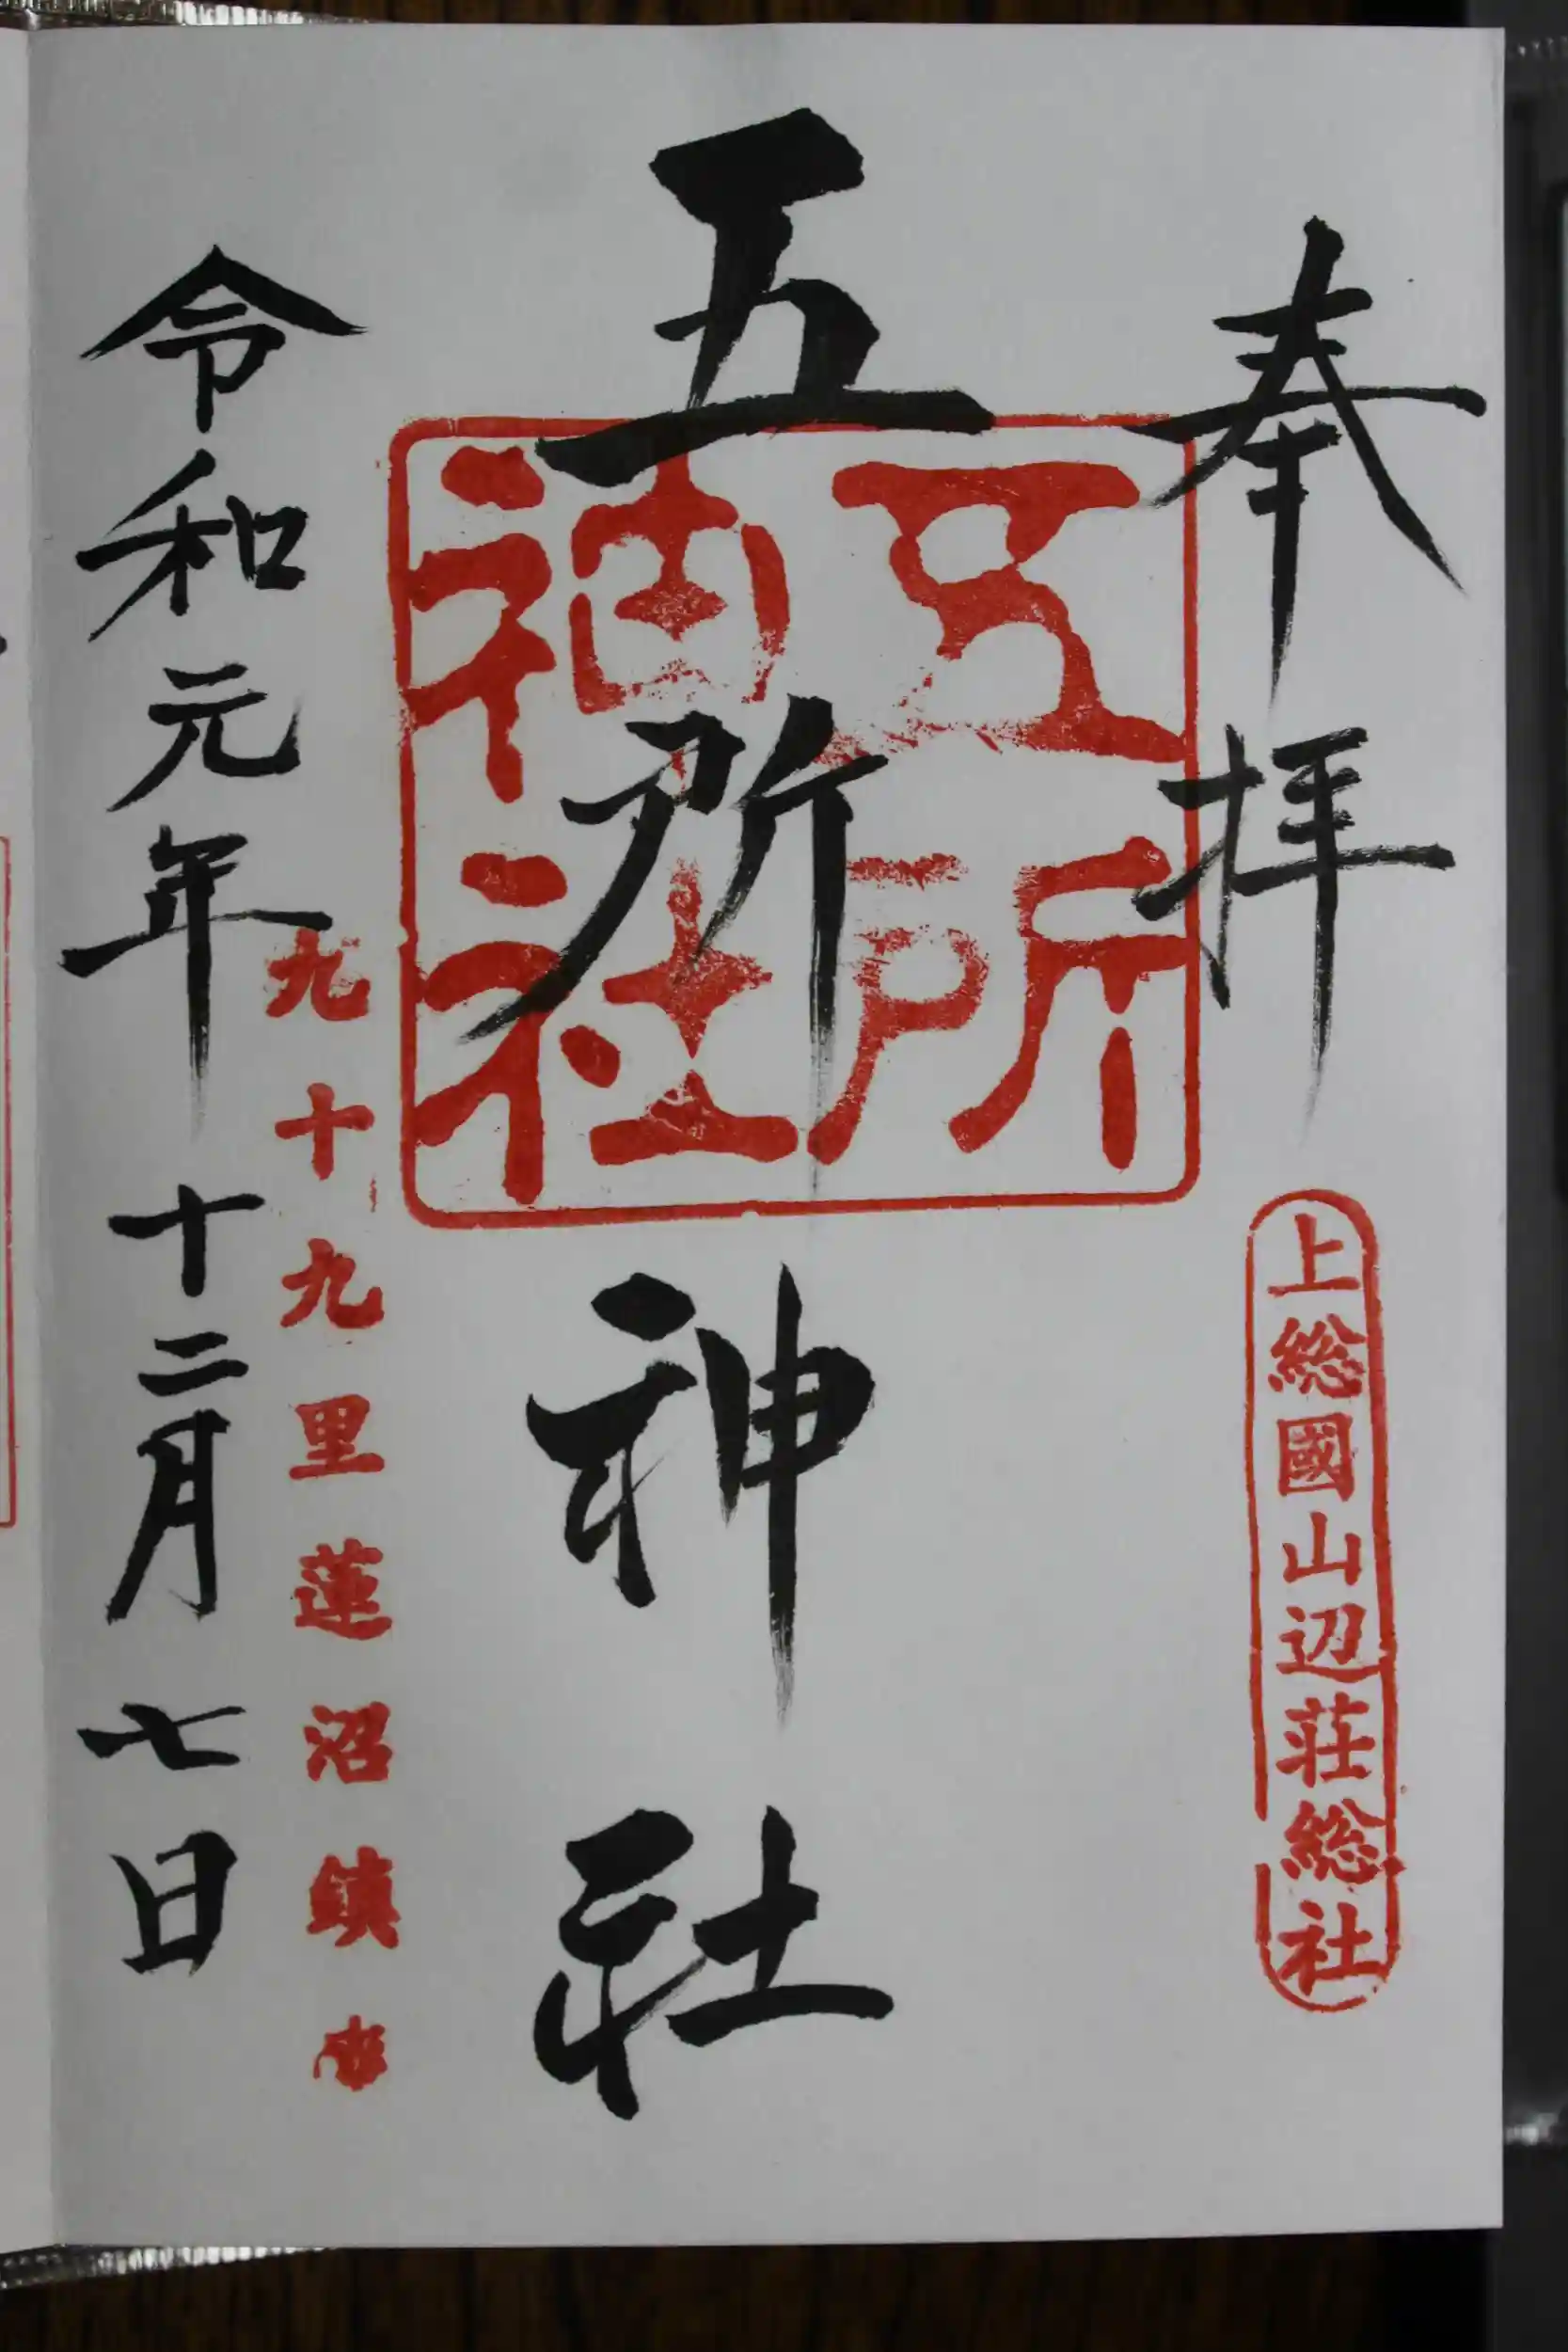 奉拝
上総國山辺荘総社
五所神社
五所
神社
九十九里蓮沼鎮
令和元年十二月七日